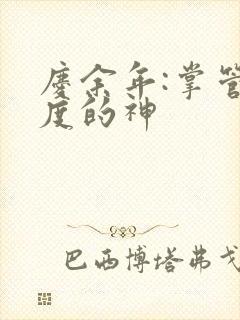 庆余年:掌管
度的神
巴西博塔弗戈